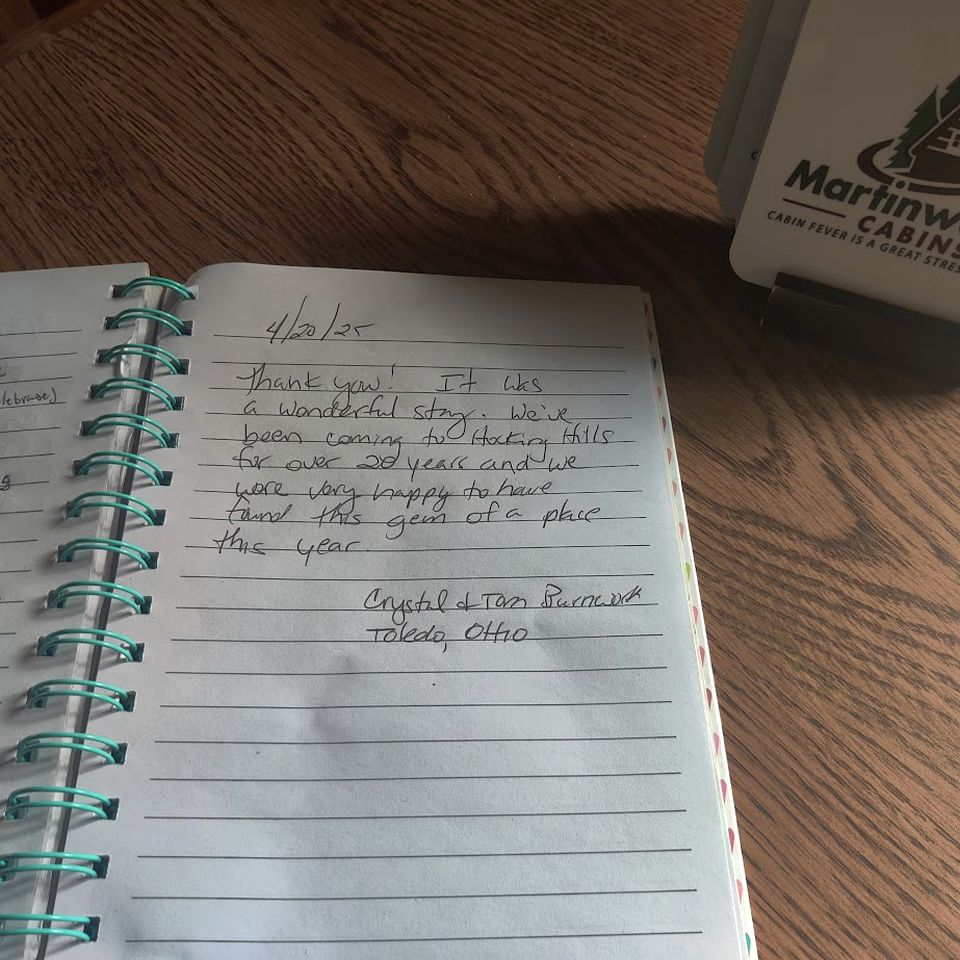 4/20/25
Thank you! It was
a wonderful stay. We've
been coming to Hocking Hills
for over 20 years and we
were very happy to have
found this gem of a place
this year.
Crystal & Tom
Toledo, Ohio
Martinw
CABINS
CABIN FEVER IS A GREAT STRES